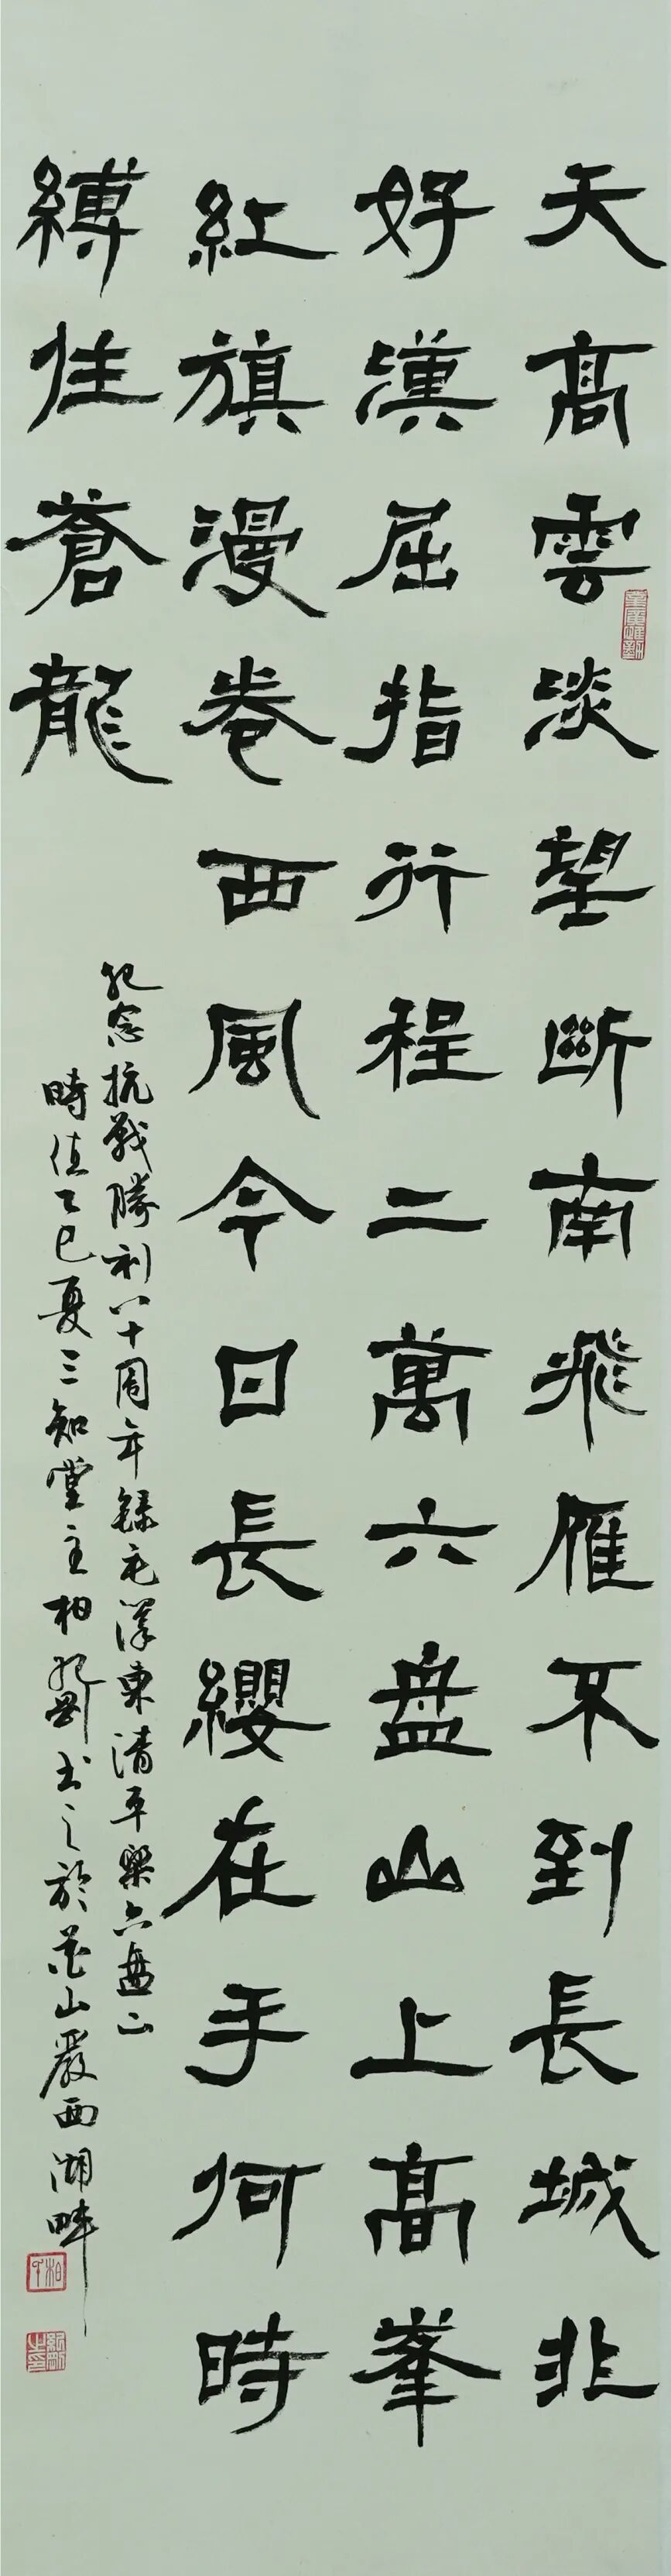 天高雲淡望斷南飛雁不到長城非
好漢屈指行程二萬六盘山上高峯
紅旗漫卷西風今日長纓在手何時
縛住蒼龍
紀念抗戰勝利八十周年録毛澤東清平樂六盘山
時值乙巳夏三知堂主柏紀剛书之於花山嚴西湖畔